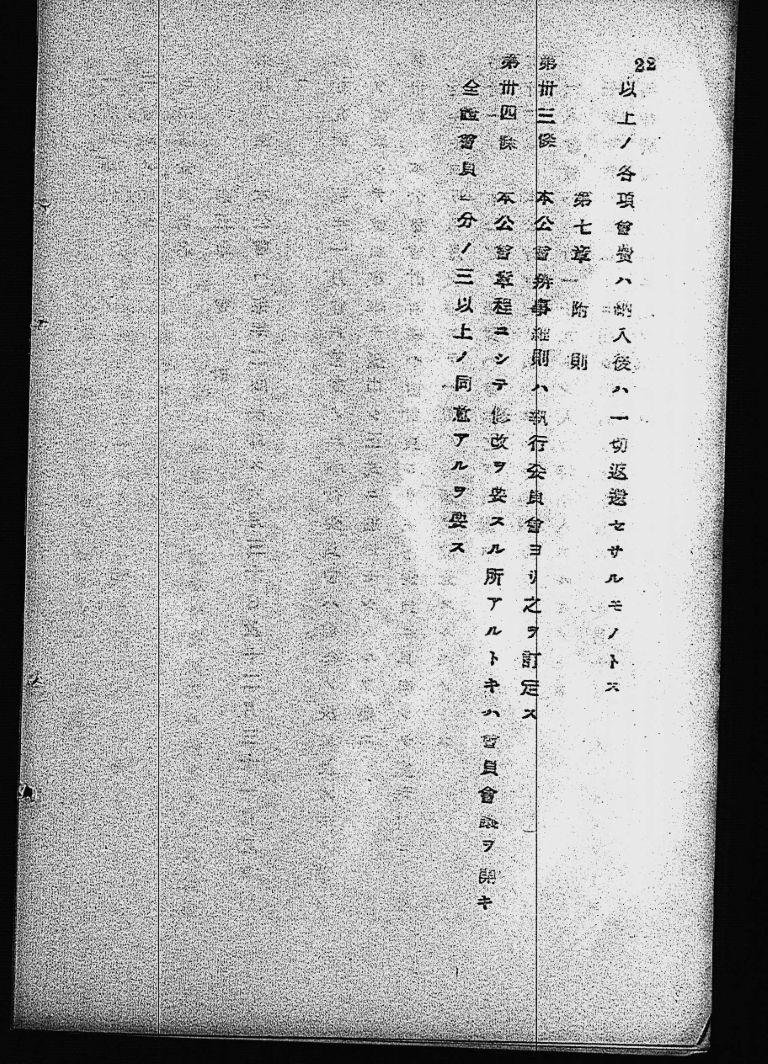 22
以上ノ各項會費ハ納入後ハ一切返還セサルモノトス
第七章 附則
第卅三條 本公會辨事細則ハ執行委員會ヨリ之ヲ訂定ス
第卅四條 本公會章程ニシテ修改ヲ要スル所アルトキハ會員會議ヲ開キ
全體會員 分ノ三以上ノ同意アルヲ要ス